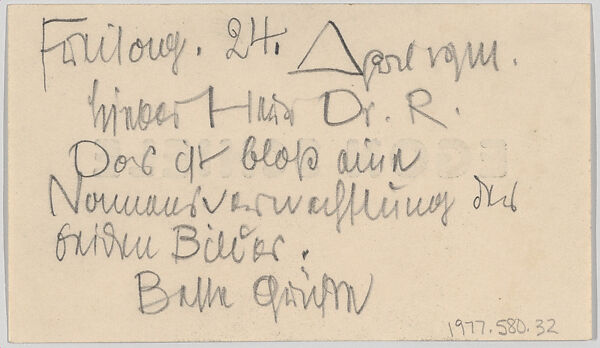 Freitag. 24. April 1914.
Lieber Herr Dr. R.
Das ist bloß eine
Namensverwechslung der
beiden Bilder.
Beste Grüße
1977.580.32